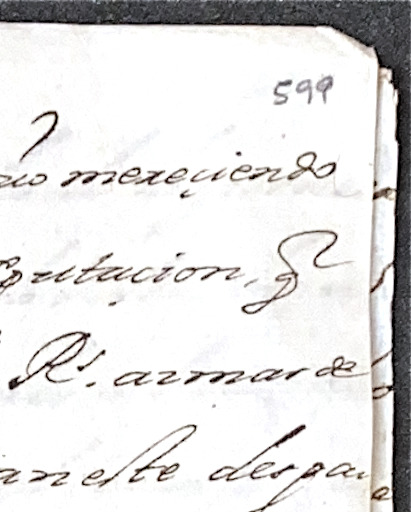 599
no mereçiendo
putacion, q
Rs. armas de
an este despa